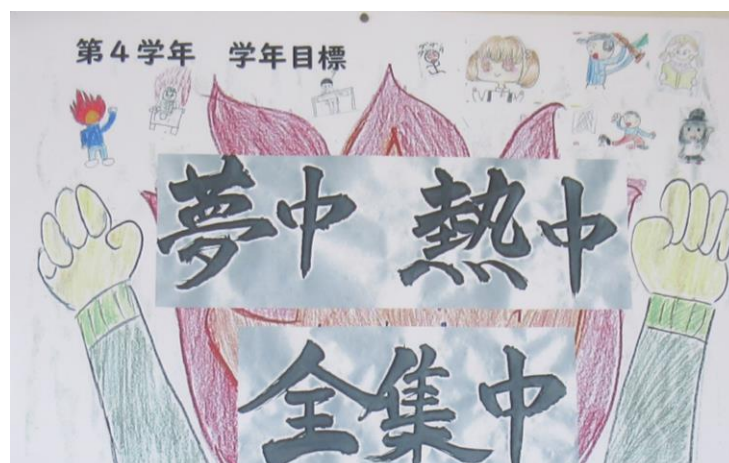 第4学年 学年目標
夢中 熱中
全集中